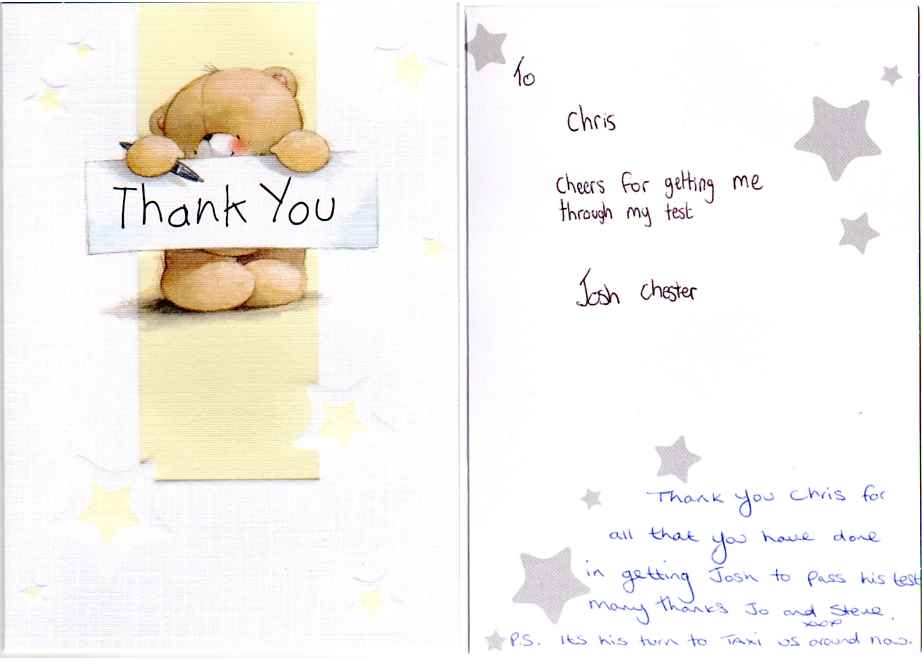 Thank You
To
Chris
Cheers for getting me
through my test
Josh Chester
Thank you Chris for
all that you have done
in getting Josh to pass his test
many thanks Jo and Steve.
xxox
P.S. Its his turn to TAXI us around now.